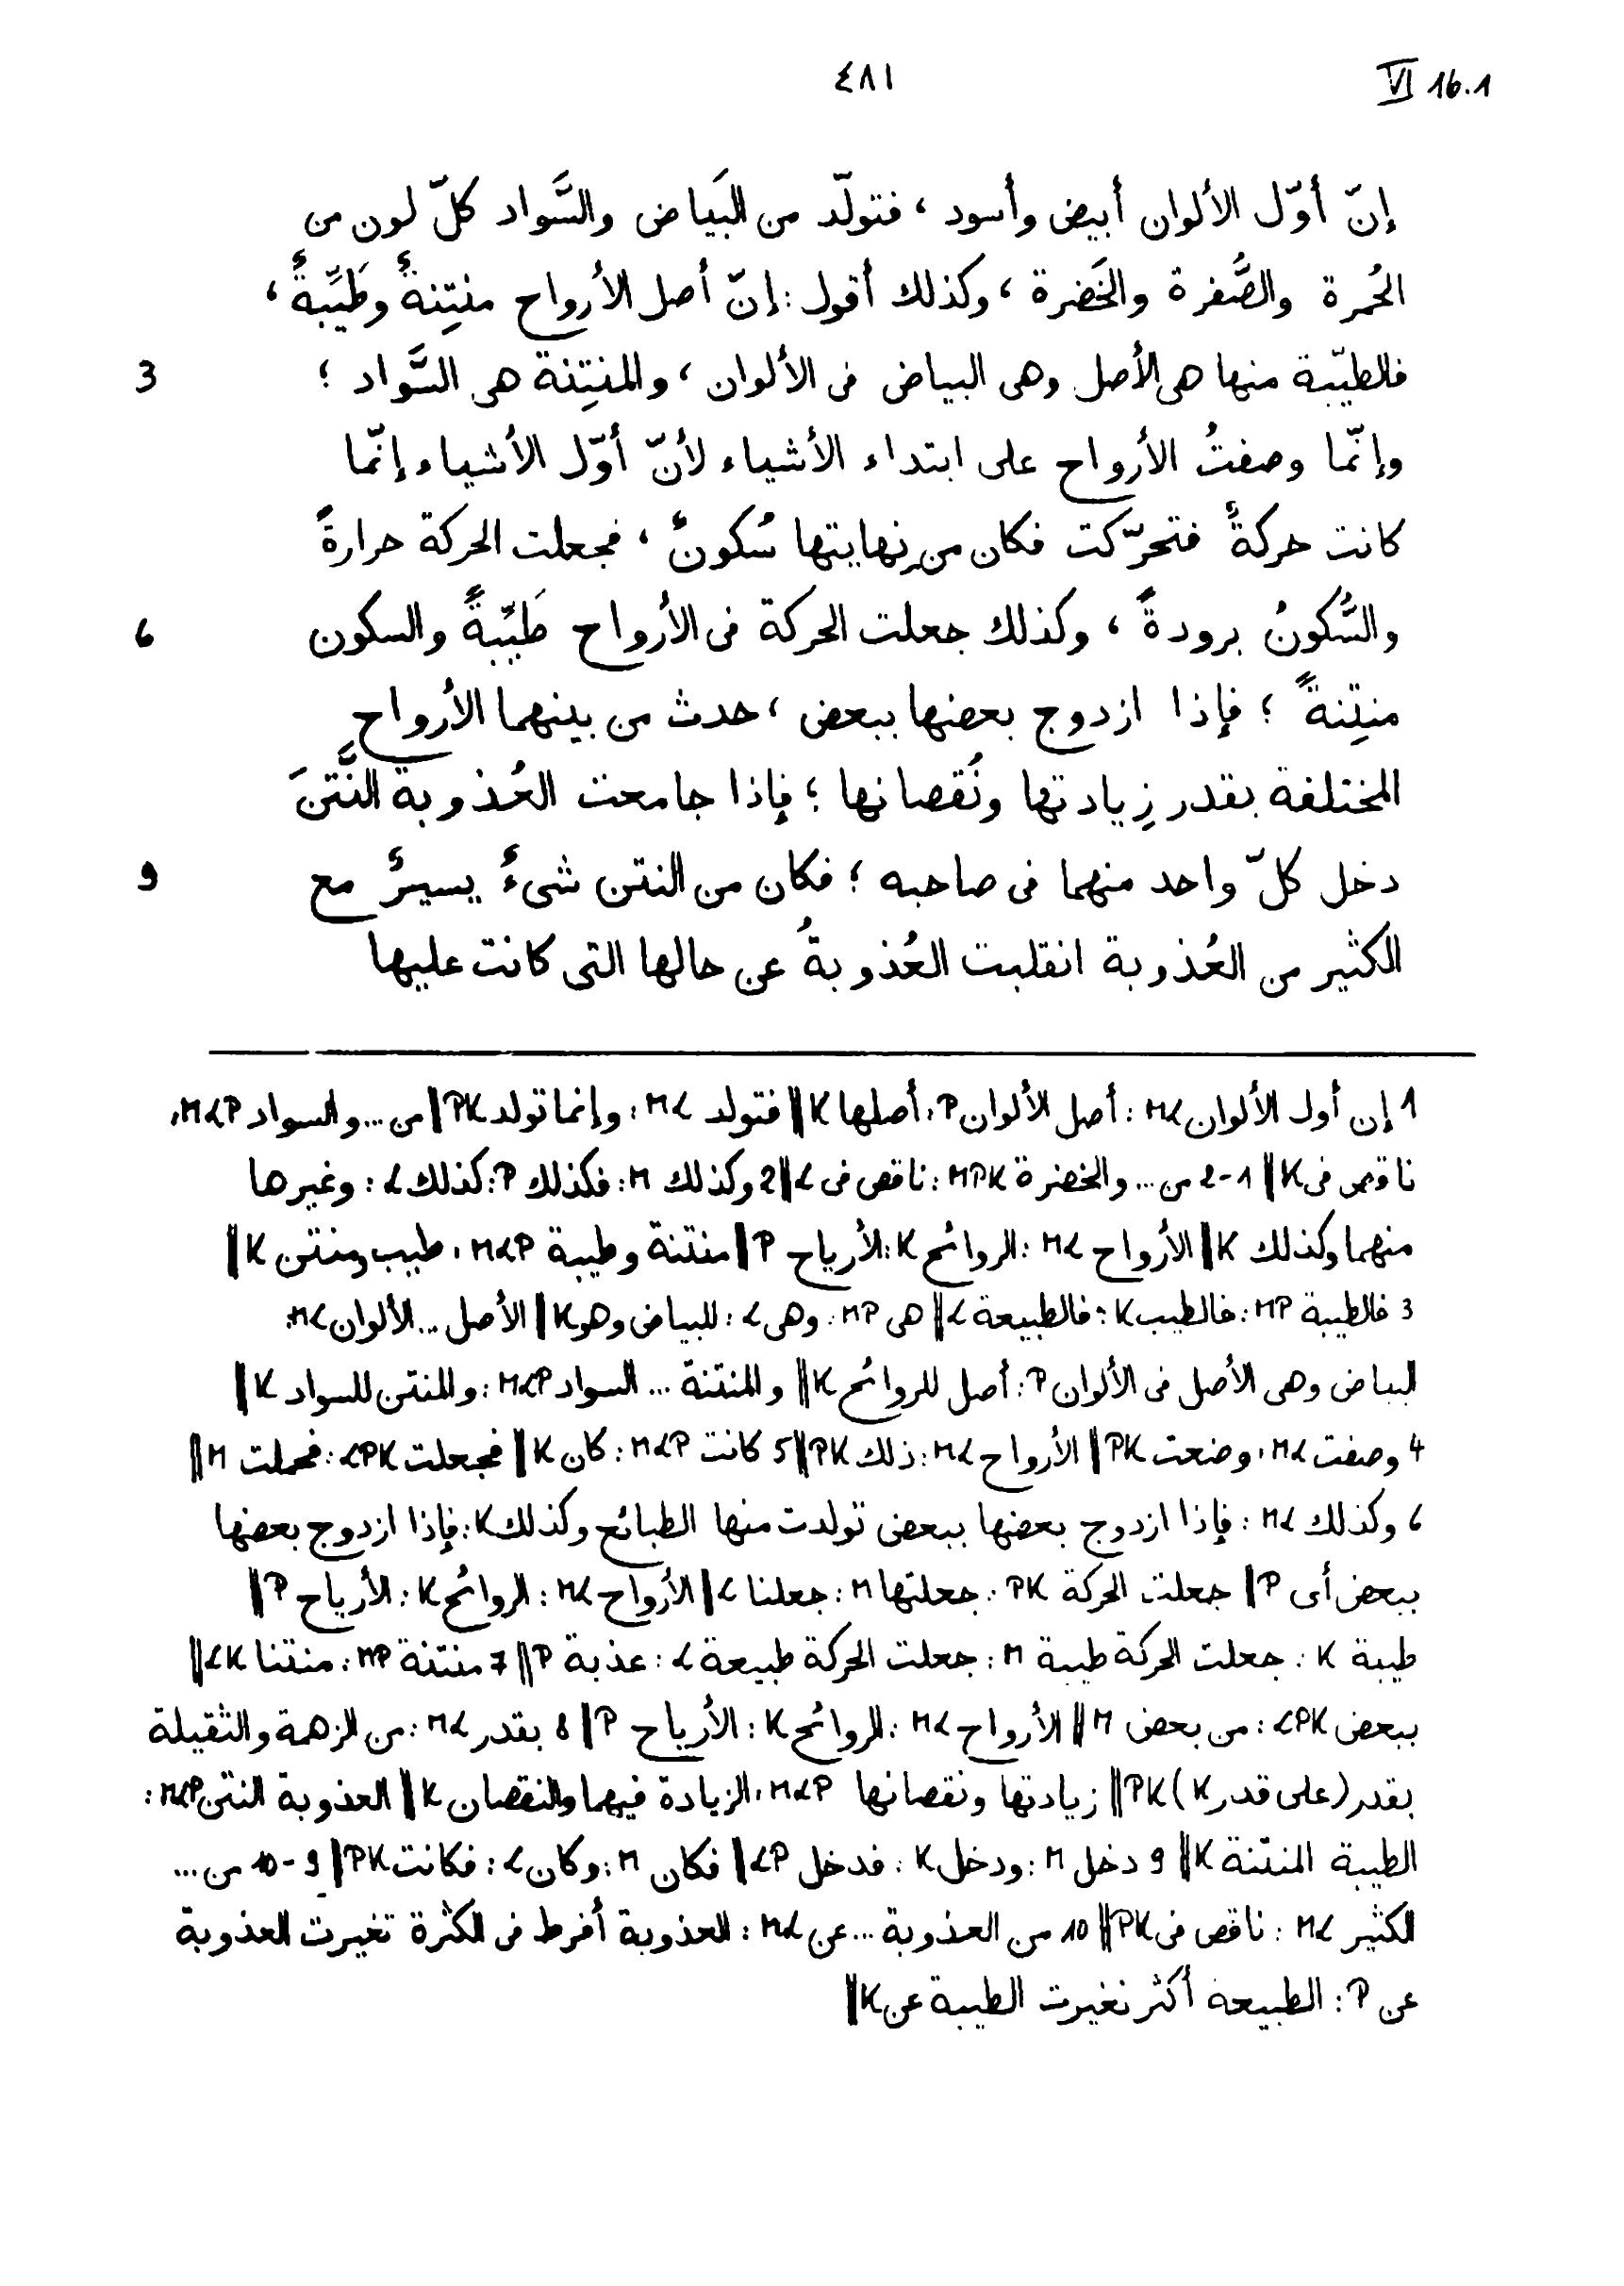 ٤٨١ VI 16.1
إنّ أوّل الألوان أبيض وأسود ، فتولّد من البَياض والسَّواد كلّ لون من
الحُمرة والصُّفرة والخَضرة ، وكذلك أقول : إنّ أصل الأرواح منتِنةٌ وطَيِّبةٌ ،
3 فالطيّبة منها هى الأصل وهى البياض فى الألوان ، والمنتِنة هى السَّواد ؛
وإنّما وصفتُ الأرواح على ابتداء الأشياء لأنّ أوّل الأشياء إنّما
كانت حركةً فتحرّكت فكان من نِهايتها سُكونٌ ، فجعلت الحركة حرارةً
6 والسُّكونُ برودةً ، وكذلك جعلت الحركة فى الأرواح طَيِّبةً والسكون
منتِنةً ؛ فإذا ازدوج بعضها ببعض ، حدث من بينهما الأرواح
المختلفة بقدر زِيادتها ونُقصانها ؛ فإذا جامعت العُذوبة النَّتنَ
9 دخل كلّ واحد منهما فى صاحبه ؛ فكان من النتن شىءٌ يسيرٌ مع
الكثير من العُذوبة انقلبت العُذوبةُ عن حالها التى كانت عليها
1 إن أول الألوان ML : أصل الألوان P، أصلها K || فتولد ML : وإنما تولد PK || من ... والسواد MLP،
ناقص فى K || 1-2 من ... والخضرة MPK : ناقص فى L || 2 وكذلك M : فكذلك P : كذلك L : وغيرها
منهما وكذلك K || الأرواح ML : الروائح K : الأرياح P || منتنة وطيبة MLP ، طيب ومنتن K ||
3 فالطيبة MP : فالطيب K : فالطبيعة L || هى MP : وهى L : للبياض وهو K || الأصل ... الألوان ML :
البياض وهى الأصل فى الألوان P : أصل للروائح K || والمنتنة ... السواد MLP : والمنتن للسواد K ||
4 وصفت ML ، وضعت PK || الأرواح ML : ذلك PK || 5 كانت MLP : كان K || فجعلت LPK : فحملت M ||
6 وكذلك ML : فإذا ازدوج بعضها ببعض تولدت منها الطبائع وكذلك K : فإذا ازدوج بعضها
ببعض أى P || جعلت الحركة PK : جعلتها M : جعلنا L || الأرواح ML : الروائح K : الأرياح P ||
طيبة K : جعلت الحركة طيبة M : جعلت الحركة طبيعة L : عذبة P || 7 منتنة MP : منتنا LK ||
ببعض LPK : من بعض M || الأرواح ML : الروائح K : الأرياح P || 8 بقدر ML : من الزهمة والثقيلة
بقدر (على قدر K) PK || زيادتها ونقصانها MLP ، الزيادة فيهما والنقصان K || العذوبة النتن MLP :
الطيبة المنتنة K || 9 دخل M : ودخل K : فدخل LP || فكان M : وكان L : فكانت PK || 9-10 من ...
الكثير ML : ناقص فى PK || 10 من العذوبة ... عن ML : العذوبة أفرط فى الكثرة تغيرت العذوبة
عن P : الطبيعة أكثر تغيرت الطيبة عن K ||